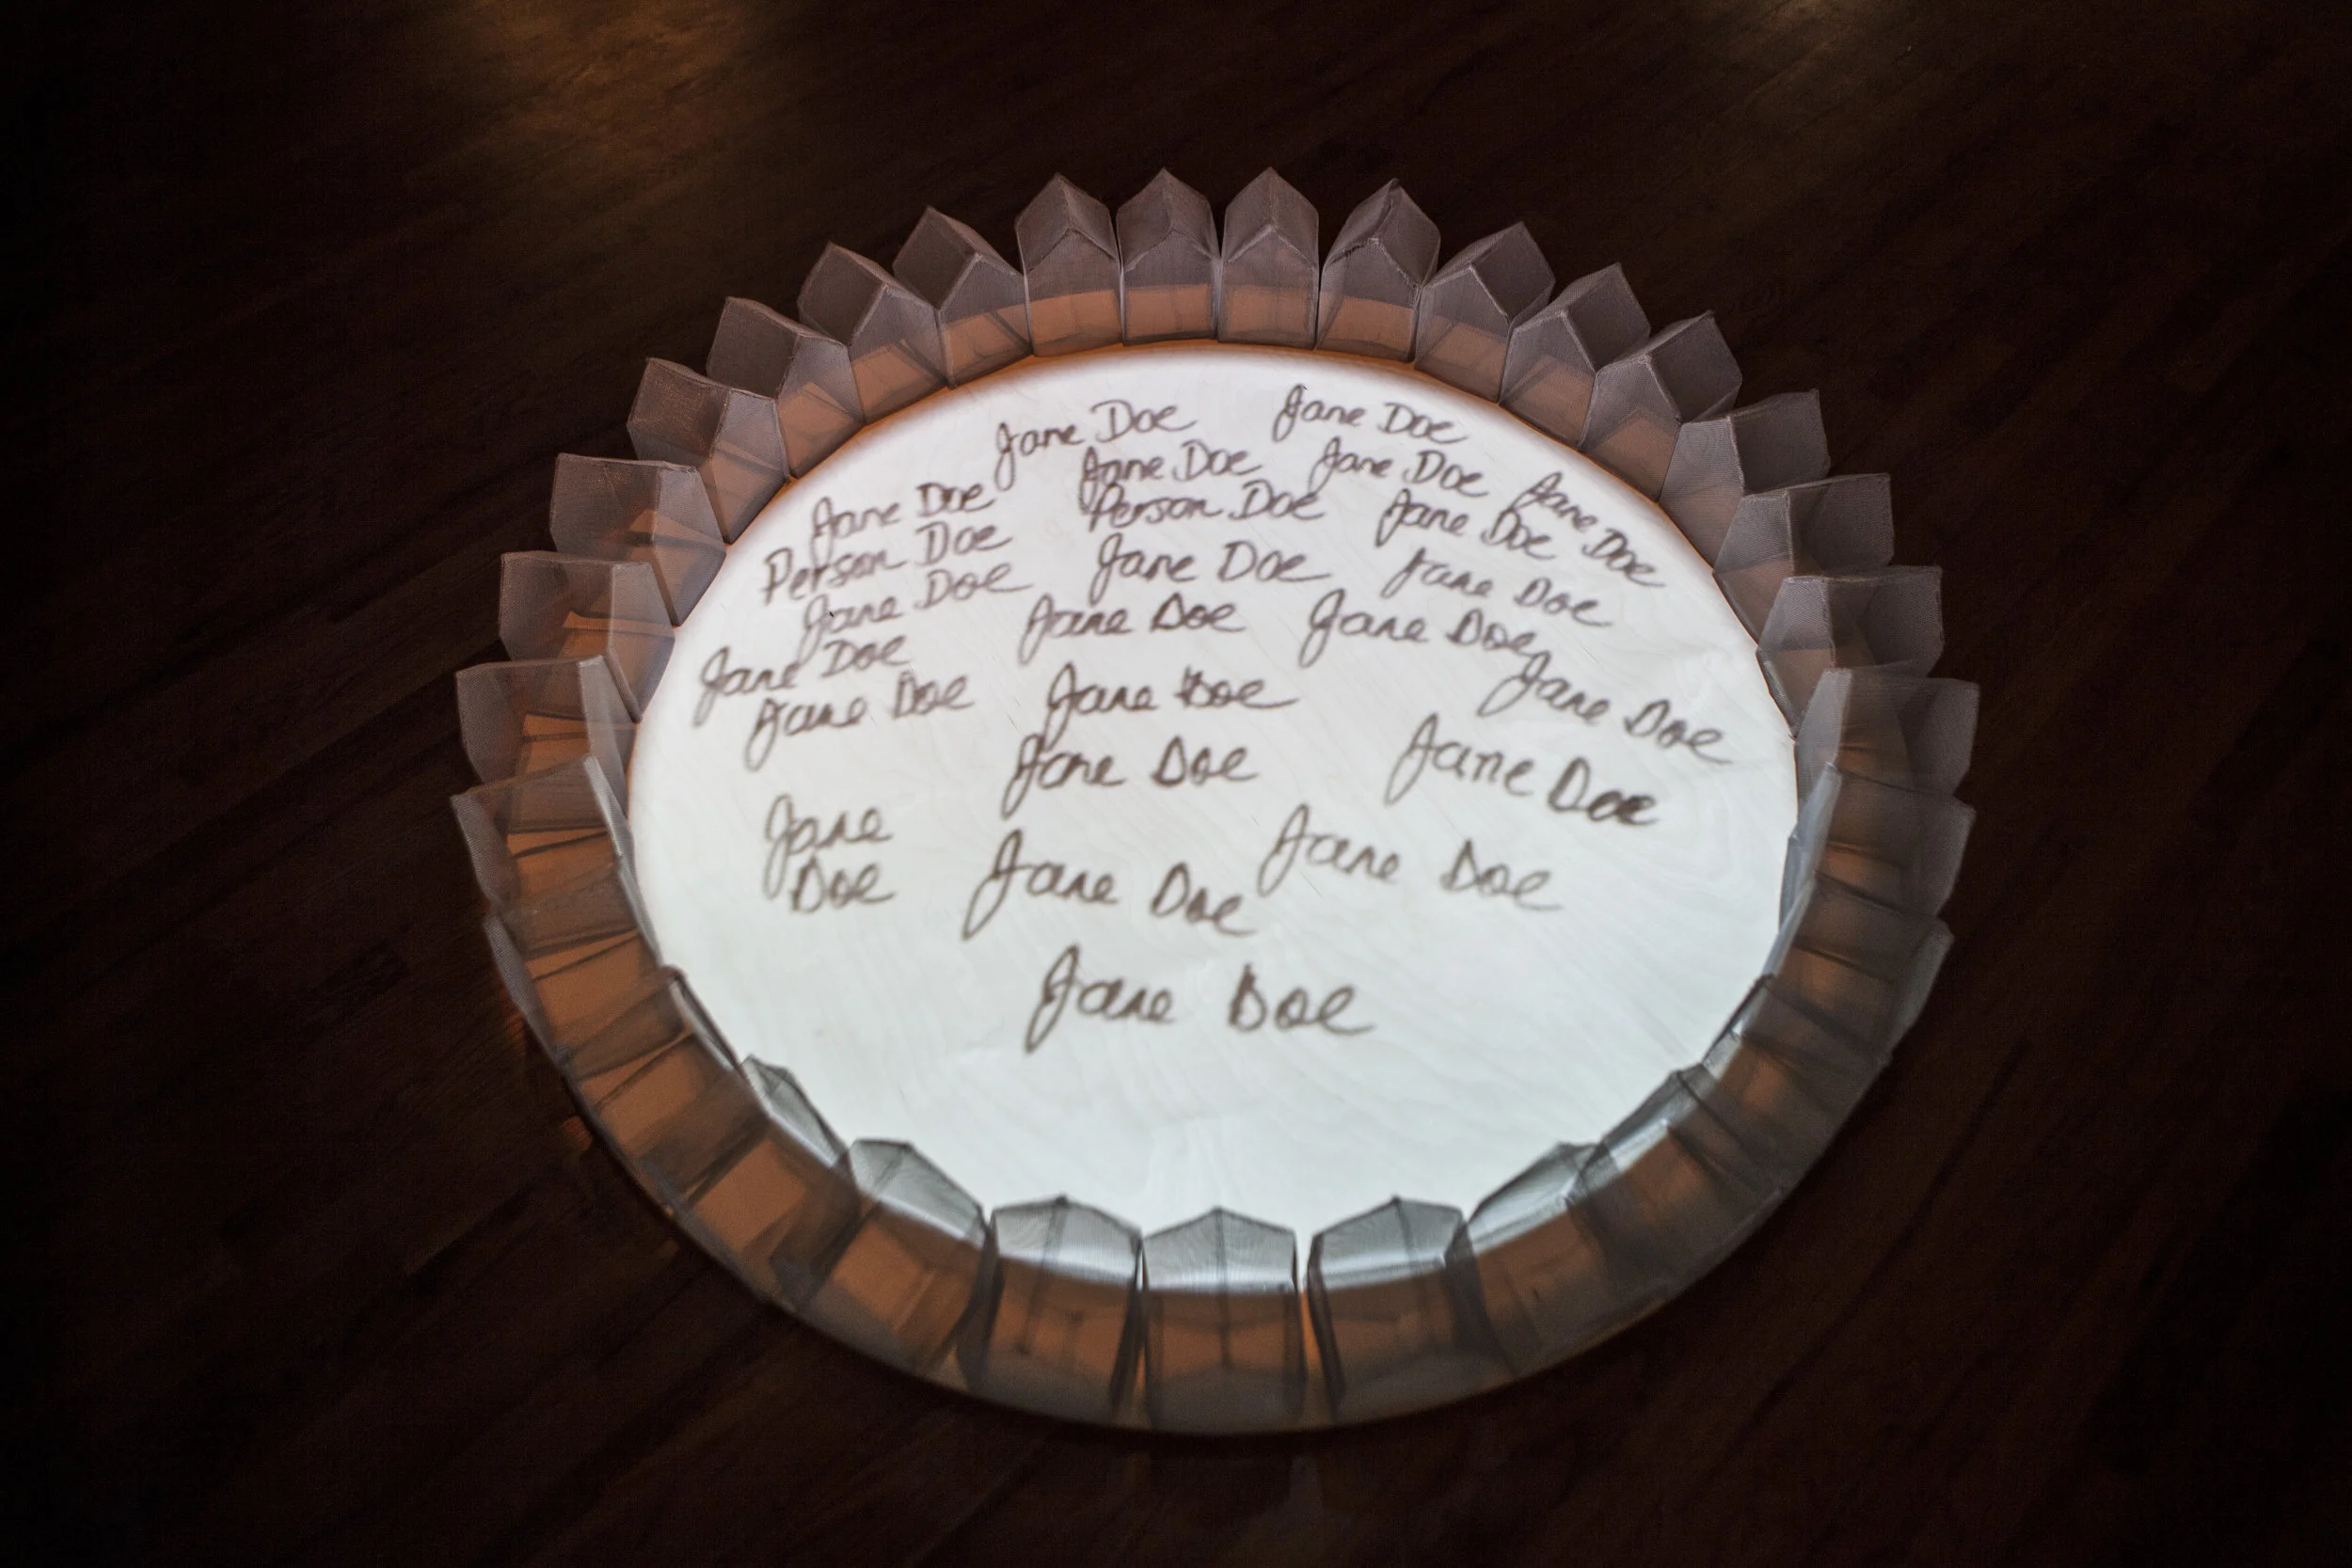 Jane Doe
Jane Doe
Jane Doe
Jane Doe
Jane Doe
Jane Doe
Person Doe
Jane Doe
Person Doe
Jane Doe
Jane Doe
Jane Doe
Jane Doe
Jane Doe
Jane Doe
Jane Doe
Jane Doe
Jane Doe
Jane Doe
Jane Doe
Jane Doe
Jane
Doe
Jane Doe
Jane Doe
Jane Doe